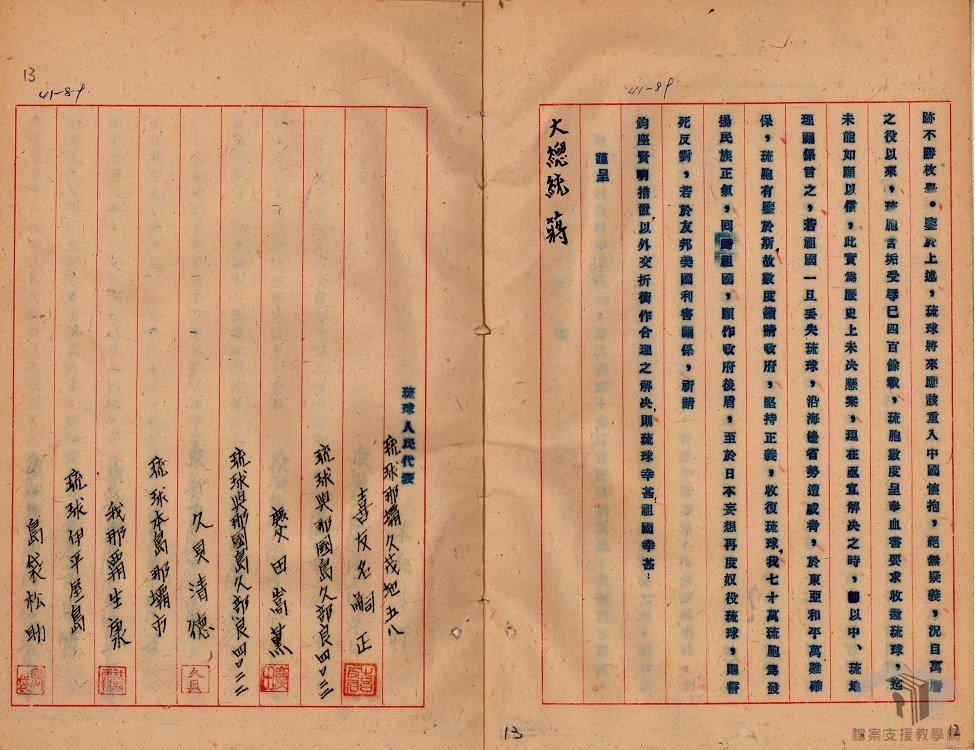 跡不勝枚舉。鑒於上述，琉球將來應該重入中國懷抱，絕無疑義，況自萬曆
之役以來，琉胞含垢受辱已四百餘載，琉胞數度呈奉血書要求收還琉球，迄
未能如願以償，此實為歷史上未決懸案，現在亟宜解決之時，卽以中、琉地
理關係言之，若祖國一旦丟失琉球，沿海邊省勢遭威脅，於東亞和平萬難確
保，琉胞有鑒於斯故數度籲請政府，堅持正義，收復琉球，我七十萬琉胞為發
揚民族正氣，回歸祖國，願作政府後盾，至於日本妄想再度奴役琉球，則誓
死反對，若於友邦美國利害關係，祈請
鈞座賢明措置，以外交折衝作合理之解決，則琉球幸甚，祖國幸甚！
謹呈
大總統 蔣
12
41-89.
檔案支援教學網
13
41-89.
琉球人民代表
琉球那霸久茂地五八
喜友名嗣正
琉球與那國島久部良四〇三
慶田嵩薰
琉球與那國島久部良四〇二二
久貝清德
久貝
琉球本島那壩市
我那霸生康
琉球伊平屋島
島袋松助
13